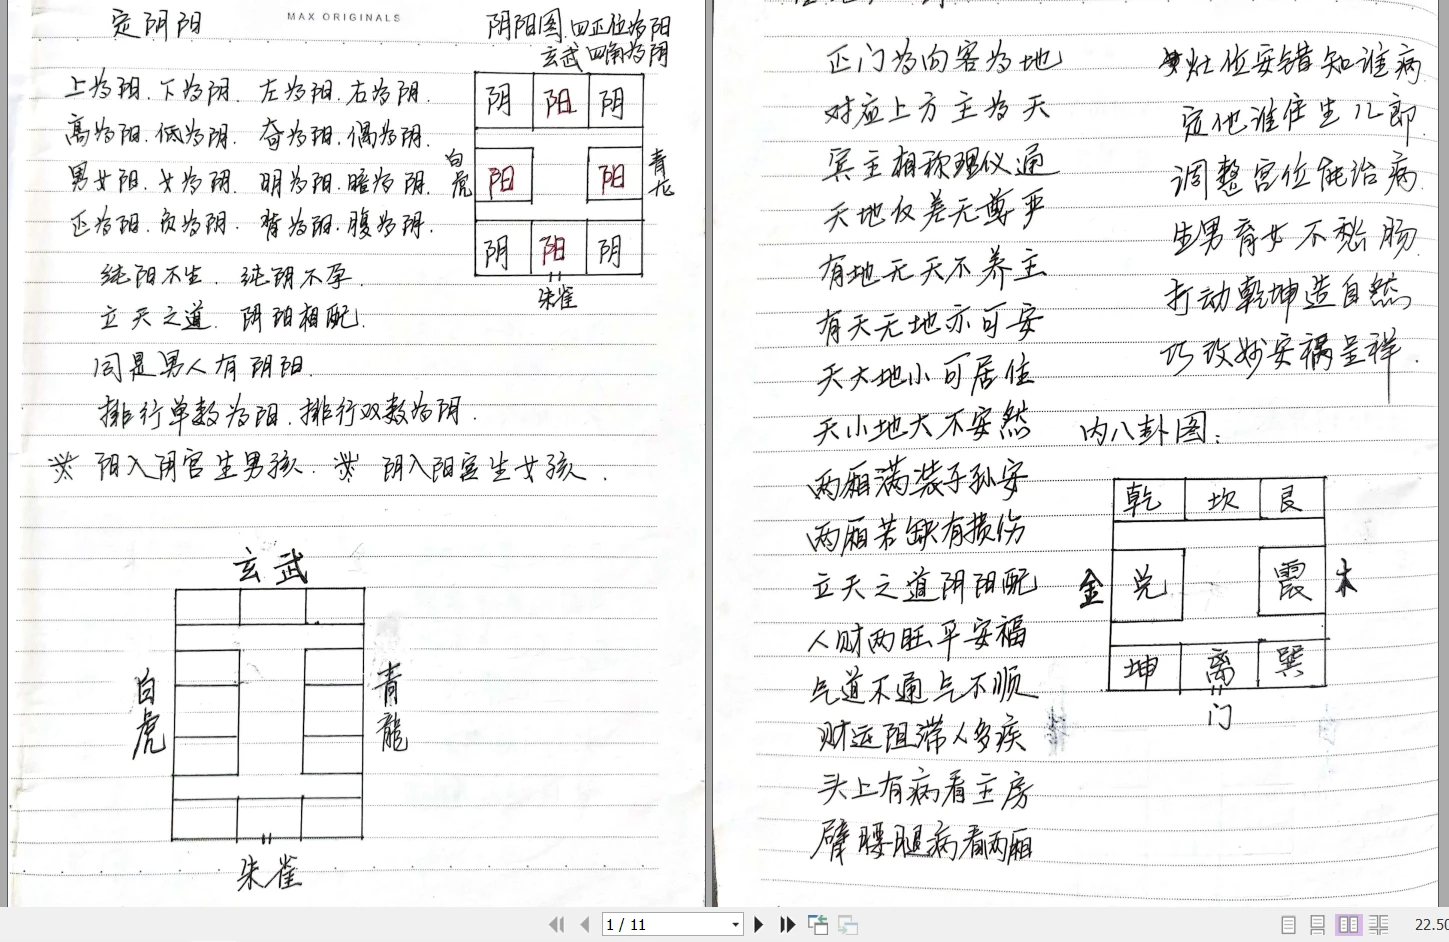 定阴阳
MAX ORIGINALS
阴阳图.四正位为阳
玄武 四角为阴
上为阳.下为阴. 左为阳.右为阴.
高为阳.低为阴. 奇为阳.偶为阴.
男女阳.女为阴. 明为阳.暗为阴.
正为阳.负为阴. 背为阳.腹为阴.
纯阳不生. 纯阴不孕.
立天之道. 阴阳相配.
同是男人有阴阳.
排行单数为阳.排行双数为阴.
※ 阳入阴宫生男孩. ※ 阴入阳宫生女孩.
阴 阳 阴
白虎 阳 阳 青龙
阴 阳 阴
朱雀
玄武
白虎
青龍
朱雀
正门为向客为地
对应上方主为天
宾主相称理仪通
天地仅差无尊严
有地无天不养主
有天无地亦可安
天大地小可居住
天小地大不安然
两厢满装子孙安
两厢若缺有损伤
立天之道阴阳配
人财两旺平安福
气道不通气不顺
财运阻滞人多疾
头上有病看主房
臂腰腿病看两厢
灶位安错知谁病
定他谁住生儿郎
调整宫位能治病
生男育女不愁肠
打动乾坤造自然
巧改妙安祸呈祥.
内八卦图:
乾 坎 艮
金 兑 震 木
坤 离 巽
门
1 / 11
22.50